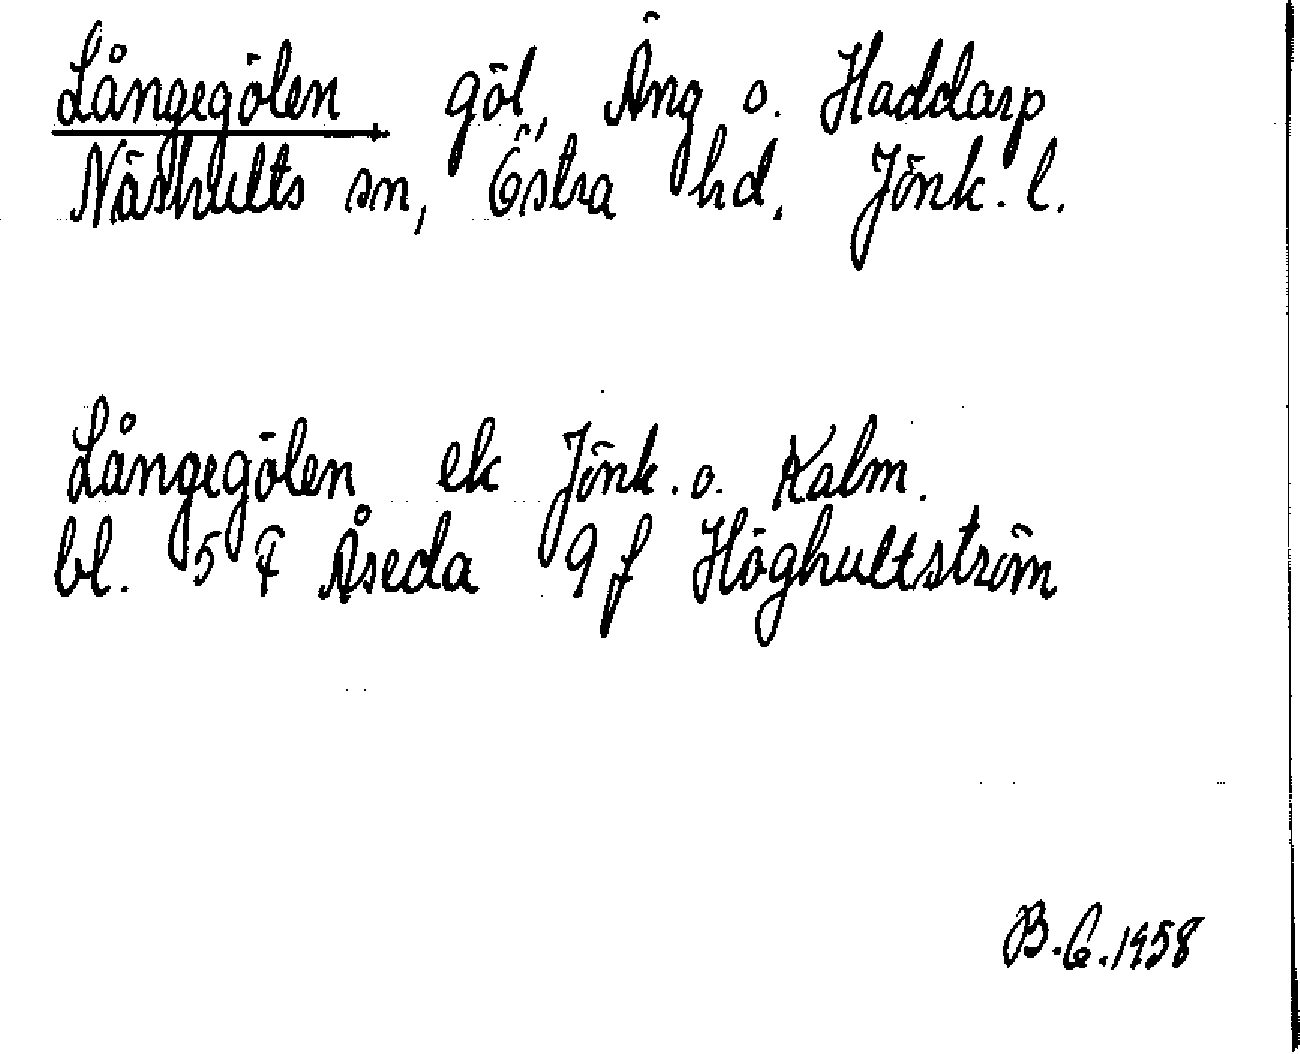 Långegölen göl, Äng o. Haddarp
Näshults sn, Östra hd. Jönk. l.
Långegölen ek Jönk. o. Kalm.
bl. 5 F Åseda 9 f Höghultström
B.G.1958